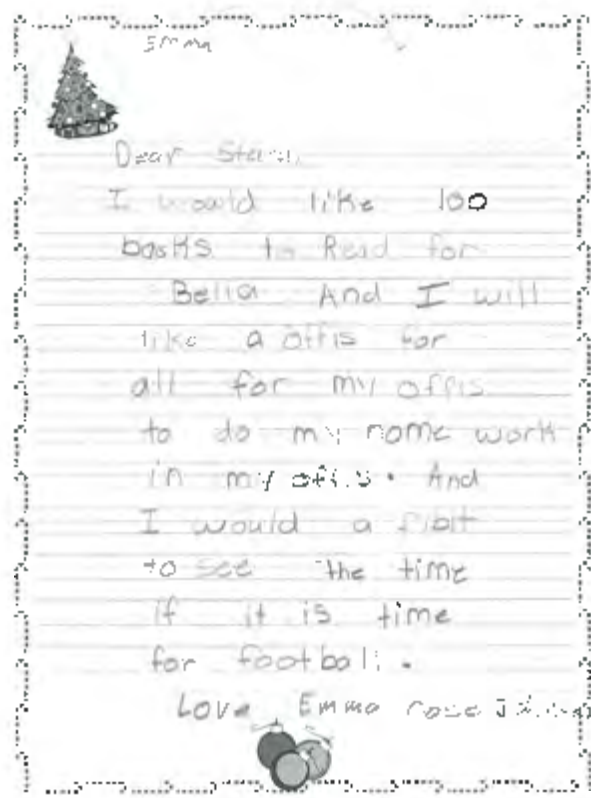 Emma
Dear
I would like 100
books to Read for
Bella And I will
like a offis for
all for my offis
to do my home work
in my offis. And
I would a fibit
to see the time
if it is time
for football.
Love Emma rose